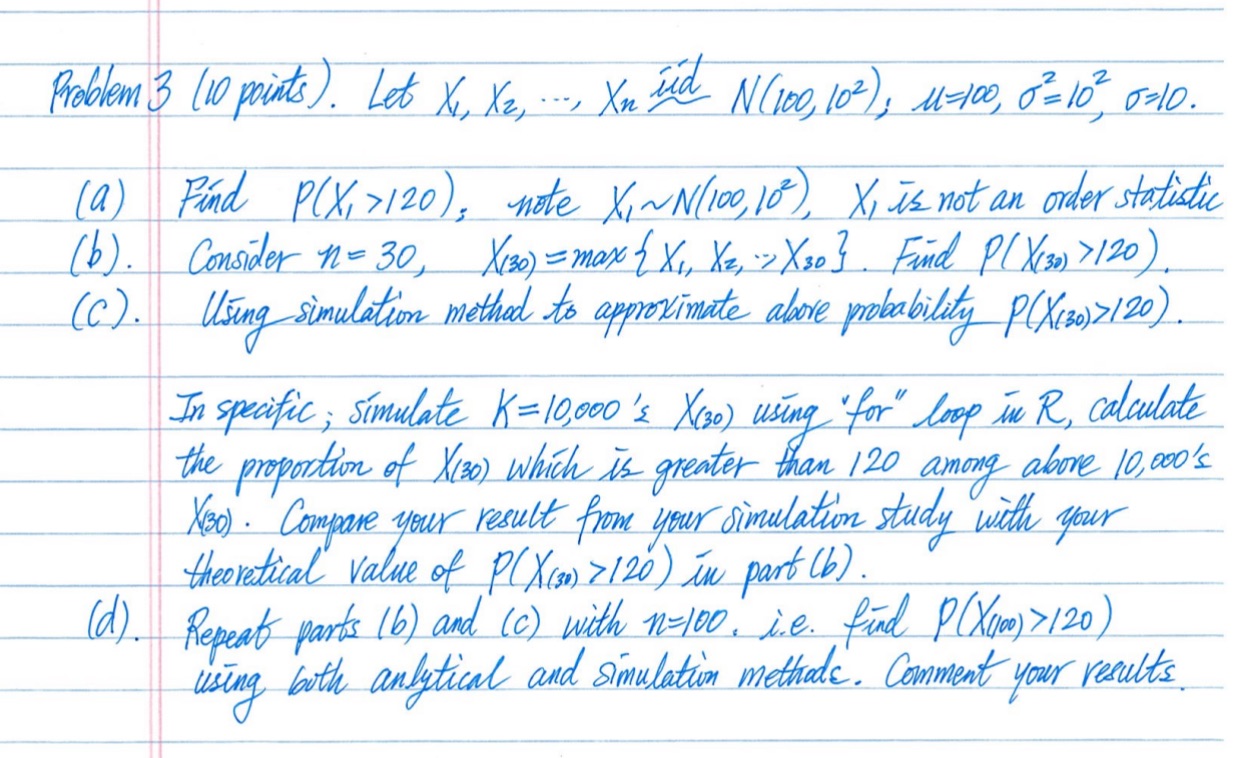 Problem 3 (10 points). Let X₁, X₂, ..., Xn iid N(100, 10²); μ=100, σ²=10², σ=10.
(a) Find P(X₁ >120); note X₁~N(100,10²), X₁ is not an order statistic
(b). Consider n=30, X(30) = max{X₁, X₂, ..., X30}. Find P(X(30) >120).
(c). Using simulation method to approximate above probability P(X(30)>120).
In specific; simulate K=10,000's X(30) using "for" loop in R, calculate
the proportion of X(30) which is greater than 120 among above 10,000's
X(30). Compare your result from your simulation study with your
theoretical value of P(X(30) >120) in part (b).
(d). Repeat parts (b) and (c) with n=100. i.e. find P(X(100) >120)
using both anlytical and simulation methods. Comment your results.